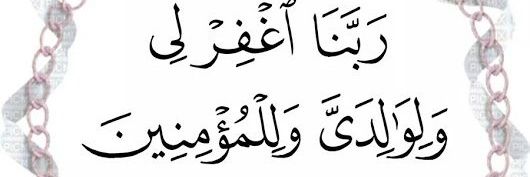 رَبَّنَا ٱغْفِرْ لِى
وَلِوَٰلِدَىَّ وَلِلْمُؤْمِنِينَ